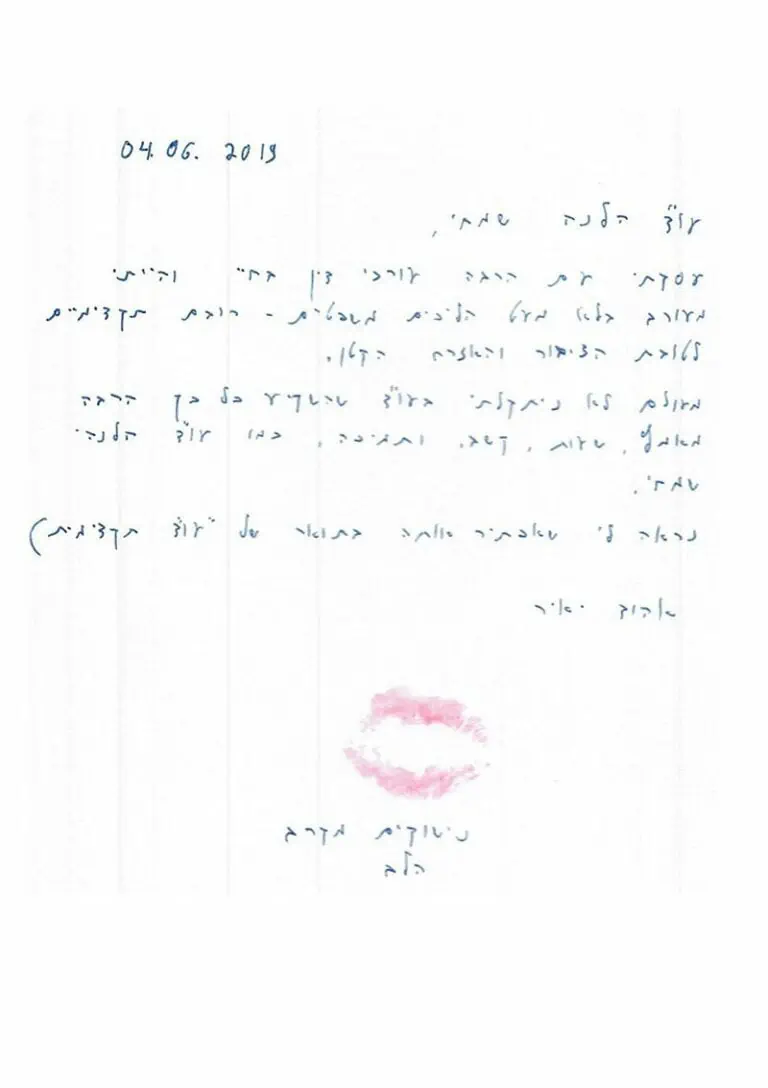 04.06.2019
עו"ד הלנה שמחי,
עסקתי עם הרבה עורכי דין בחיי והייתי
מעורב בלא מעט הליכים משפטיים - רובם תקדימיים
לטובת הציבור והאזרח הקטן.
מעולם לא ניתקלתי בעו"ד שהשקיע כל כך הרבה
מאמץ, שעות, קשב, ותמיכה, כמו עו"ד הלנה
שמחי.
נראה לי שאכתיר אותה בתואר של "עו"ד תקדימית)
אהוד יאיר
נישוקים מקרב
הלב